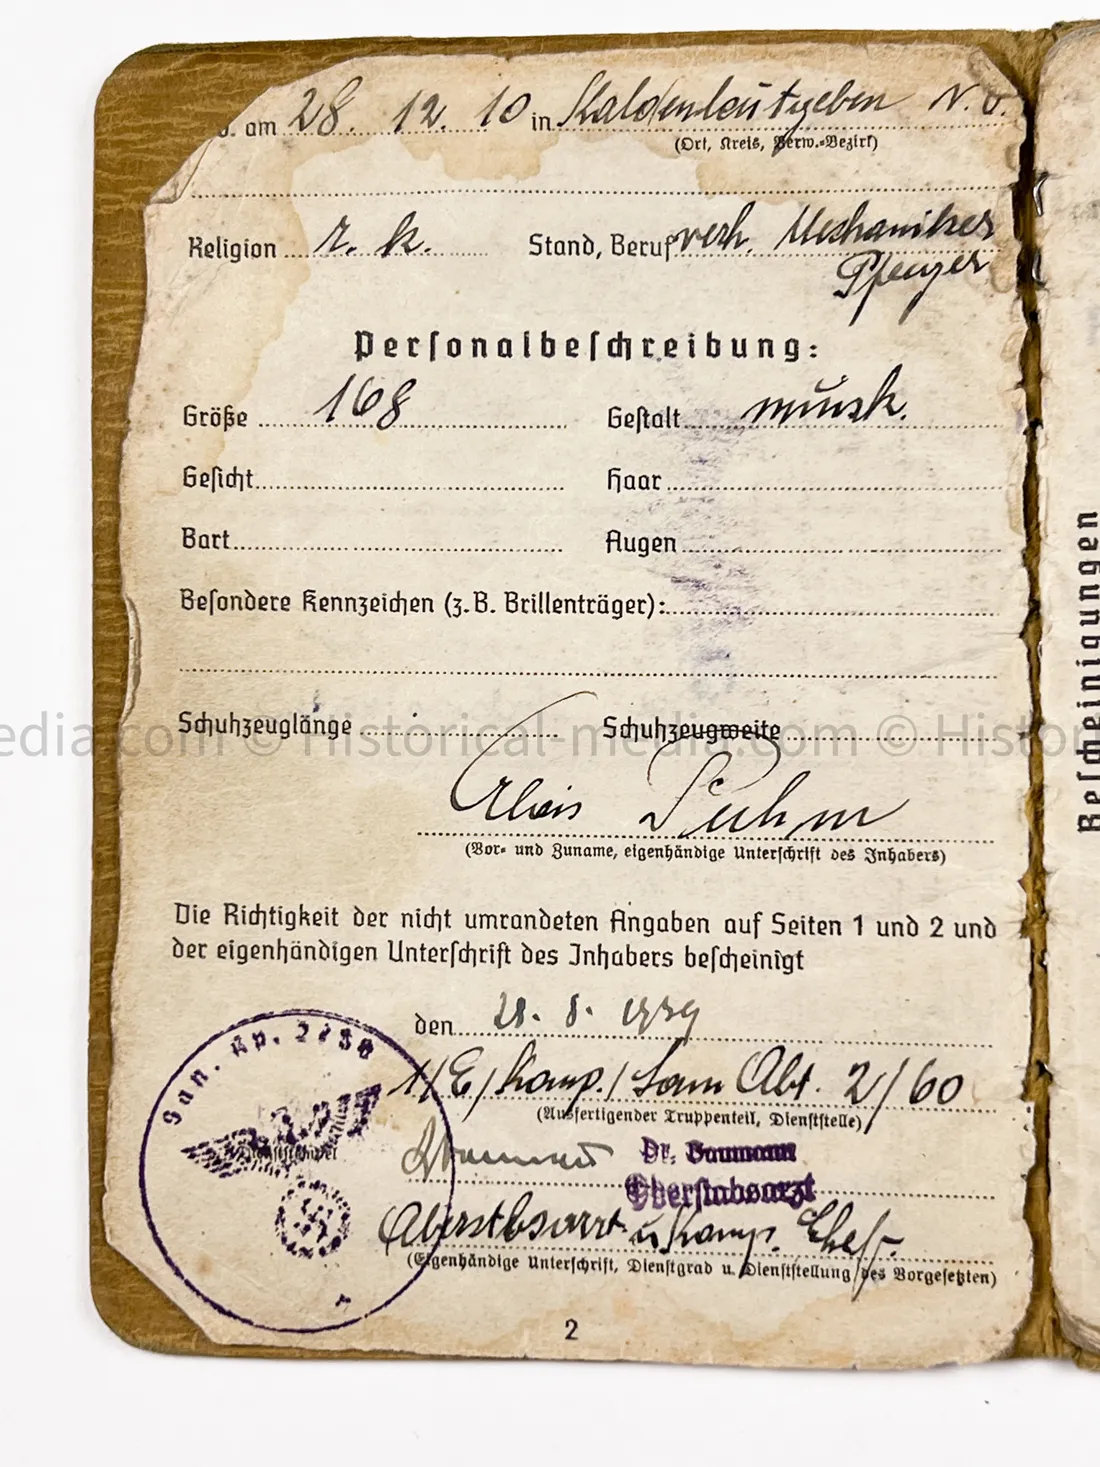 . am 28. 12. 10 in Kaldenleutgeben N.Ö.
(Ort, Kreis, Verw.-Bezirk)
Religion r. k. Stand, Beruf verh. Mechaniker
Personalbeschreibung:
Größe 168 Gestalt musk.
Gesicht Haar
Bart Augen
Besondere Kennzeichen (z.B. Brillenträger):
Schuhzeuglänge Schuhzeugweite
edia.com © Historical-media.com © Histor
Alois
(Vor- und Zuname, eigenhändige Unterschrift des Inhabers)
Die Richtigkeit der nicht umrandeten Angaben auf Seiten 1 und 2 und
der eigenhändigen Unterschrift des Inhabers bescheinigt
den 28. 8. 1939
San. Kp.
1/E/Komp./San Abt. 2/60
(Ausfertigender Truppenteil, Dienststelle)
Dienststempel
Dr. Baumann
Oberstabsarzt
Oberstbsarzt u Komp. Chef.
(Eigenhändige Unterschrift, Dienstgrad u. Dienststellung des Vorgesetzten)
2
Bescheinigungen